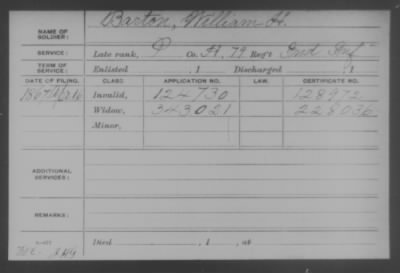 Barton, William H.
NAME OF SOLDIER:
SERVICE: Late rank, P Co. A, 79 Reg't Ind Inf
TERM OF SERVICE: Enlisted , 1 Discharged , 1
DATE OF FILING. CLASS APPLICATION NO. LAW. CERTIFICATE NO.
1867 Invalid, 124730 128972
Widow, 343021 228036
Minor,
ADDITIONAL SERVICES:
REMARKS:
Died , 1 , at